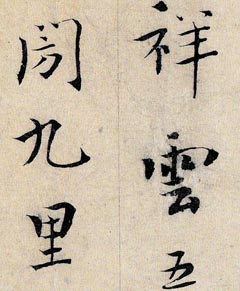 祥雲五
九里